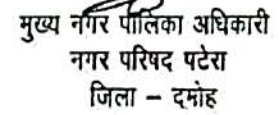 मुख्य नगर पालिका अधिकारी
नगर परिषद पटेरा
जिला – दमोह